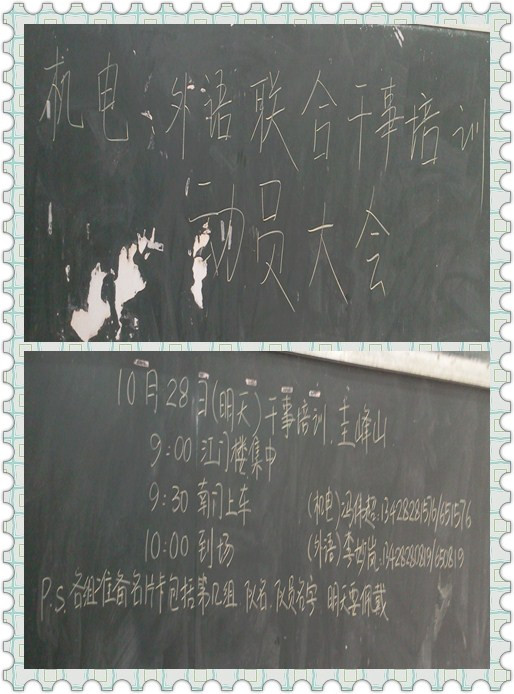 机电、外语联合干事培训
动员大会
10月28日(明天)干事培训.圭峰山
9:00 江门楼集中
9:30 南门上车
(机电)冯伟超:13428281576/651576
10:00 到场
(外语)李 :13428280819/650819
P.S.各组准备名片卡包括第几组.队名.队员名字 明天要佩戴